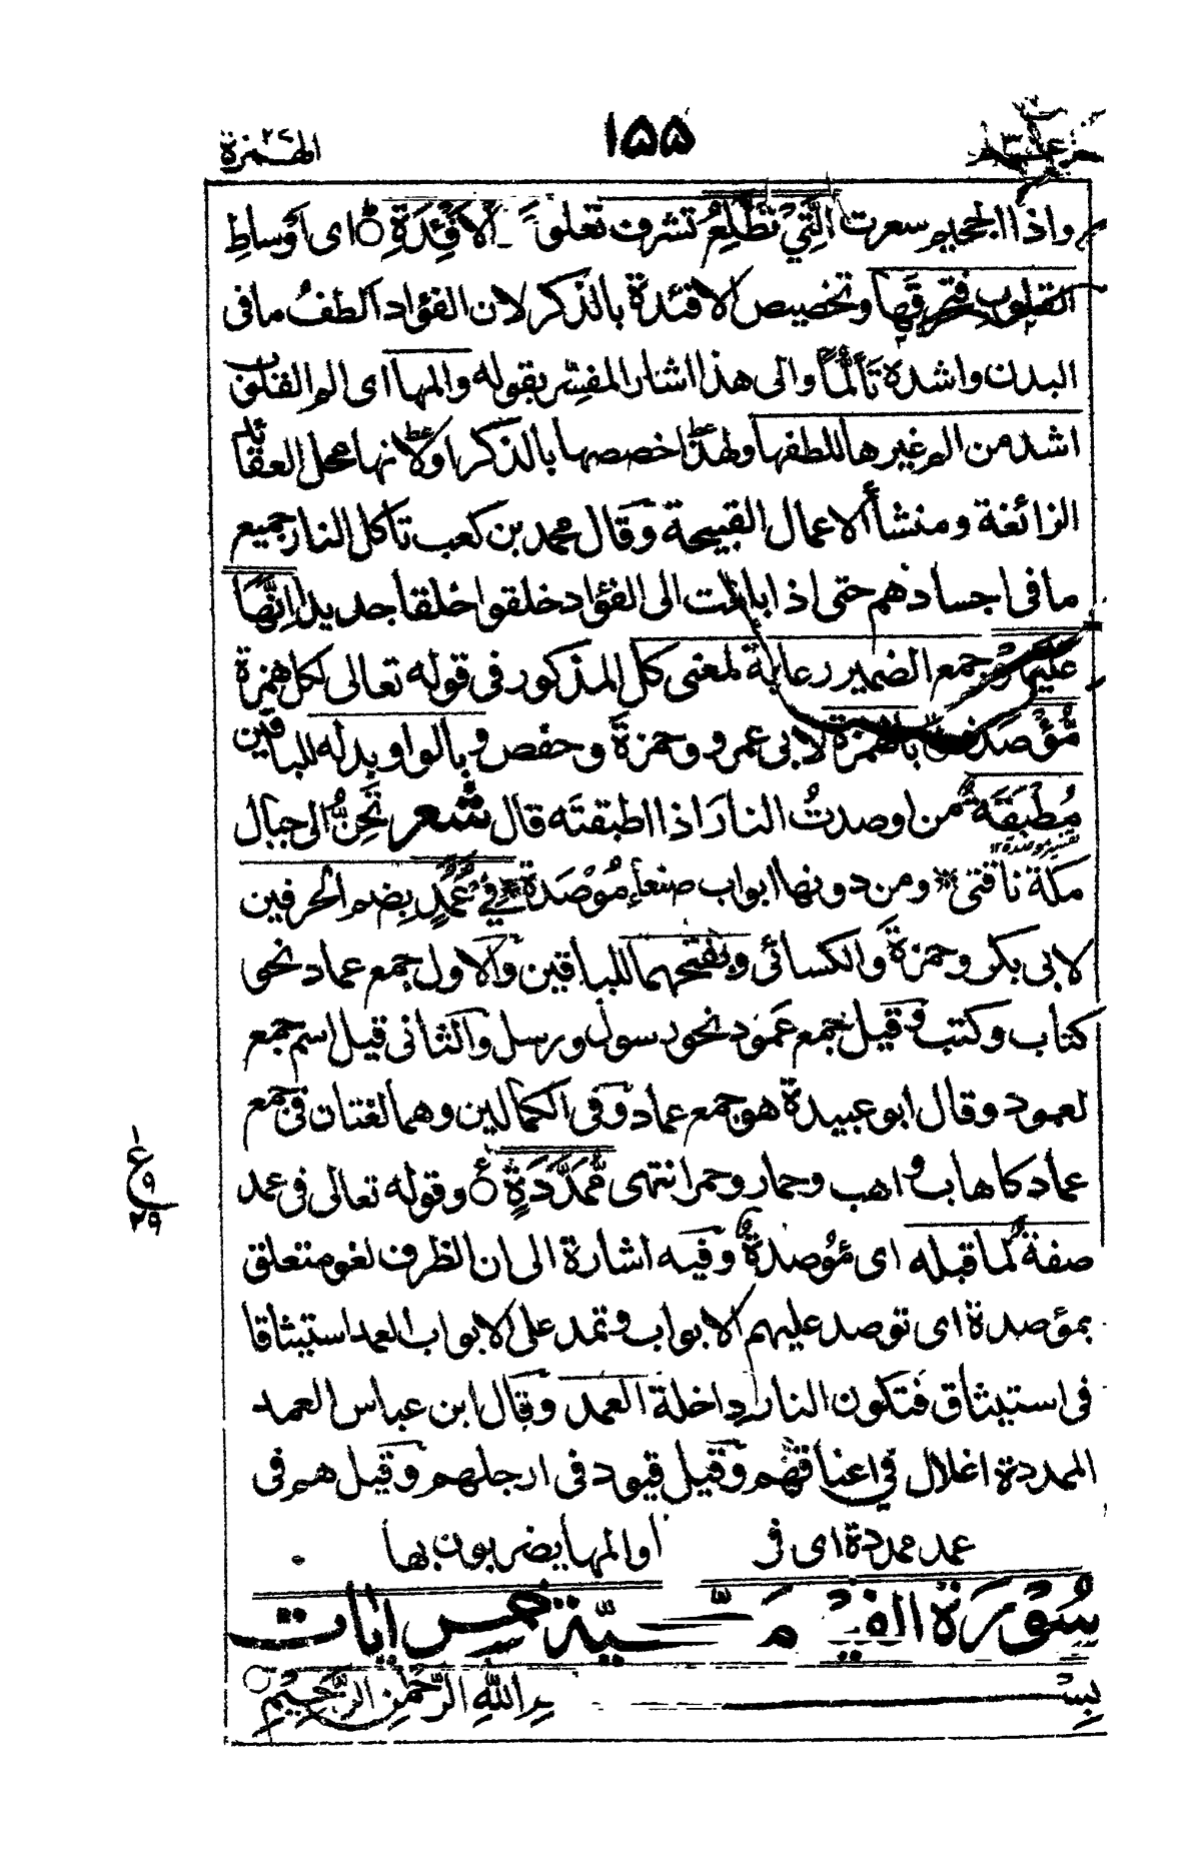 ١٥٥
الهمزة
واذا الجحيم سعرت الَّتِيْ تَطَّلِعُ تشرف تعلق الْاَفْئِدَةِ اى اوساط
القلوب فتحرقها وتخصيص الافئدة بالذكر لان الفؤاد الطفُ ما فى
البدن واشده تألّمًا والى هذا اشار المفسّر بقوله والمها اى الم القلوب
اشد من الم غيرها للطفها ولهذا خصصها بالذكر او لانها محل العقائد
الزائغة ومنشأ الاعمال القبيحة وقال محمد بن كعب تأكل النار جميع
ما فى اجسادهم حتى اذا بلغت الى الفؤاد خلقوا خلقا جديدا اِنَّهَا
عَلَيْهِمْ جمع الضمير رعاية لمعنى كل المذكور فى قوله تعالى لكل همزة
مُّؤْصَدَةٌ بالهمزة لابى عمرو وحمزة وحفص وبالواو بدله للباقين
مُطْبَقَةٌ من اوصدتُ النارَ اذا اطبقتَه قال شعر تَحِنُّ الى جبال
تفسير موصدة ١٢
مكة ناقتى ومن دونها ابواب صنعاءِ مُوْصَدَة فِيْ عُمُدٍ بضم الحرفين
لابى بكر وحمزة والكسائى وبفتحهما للباقين والاول جمع عماد نحو
كتاب وكتب وقيل جمع عَمود نحو رسول ورسل والثانى قيل اسم جمع
لعمود وقال ابو عبيدة هو جمع عماد وفى الكمالين وهما لغتان فى جمع
عماد كاهاب واهب وحمار وحمر انتهى مُّمَدَّدَةٍ ع وقوله تعالى فى عمد
ع
٩
٢٩
صفة لما قبله اى مؤصدة وفيه اشارة الى ان الظرف لغو متعلق
بمؤصدة اى توصد عليهم الابواب وتمد على الابواب العمد استيثاقا
فى استيثاق فتكون النار داخلة العمد وقال ابن عباس العمد
الممددة اغلال فى اعناقهم وقيل قيود فى ارجلهم وقيل هم فى
عمد ممددة اى فى اوالمها يضربون بها
سُوْرَة الفيـ مَـ ـكّيّة خمس ايات
بِسْـــمِ اللهِ الرَّحْمٰنِ الرَّحِيْمِ